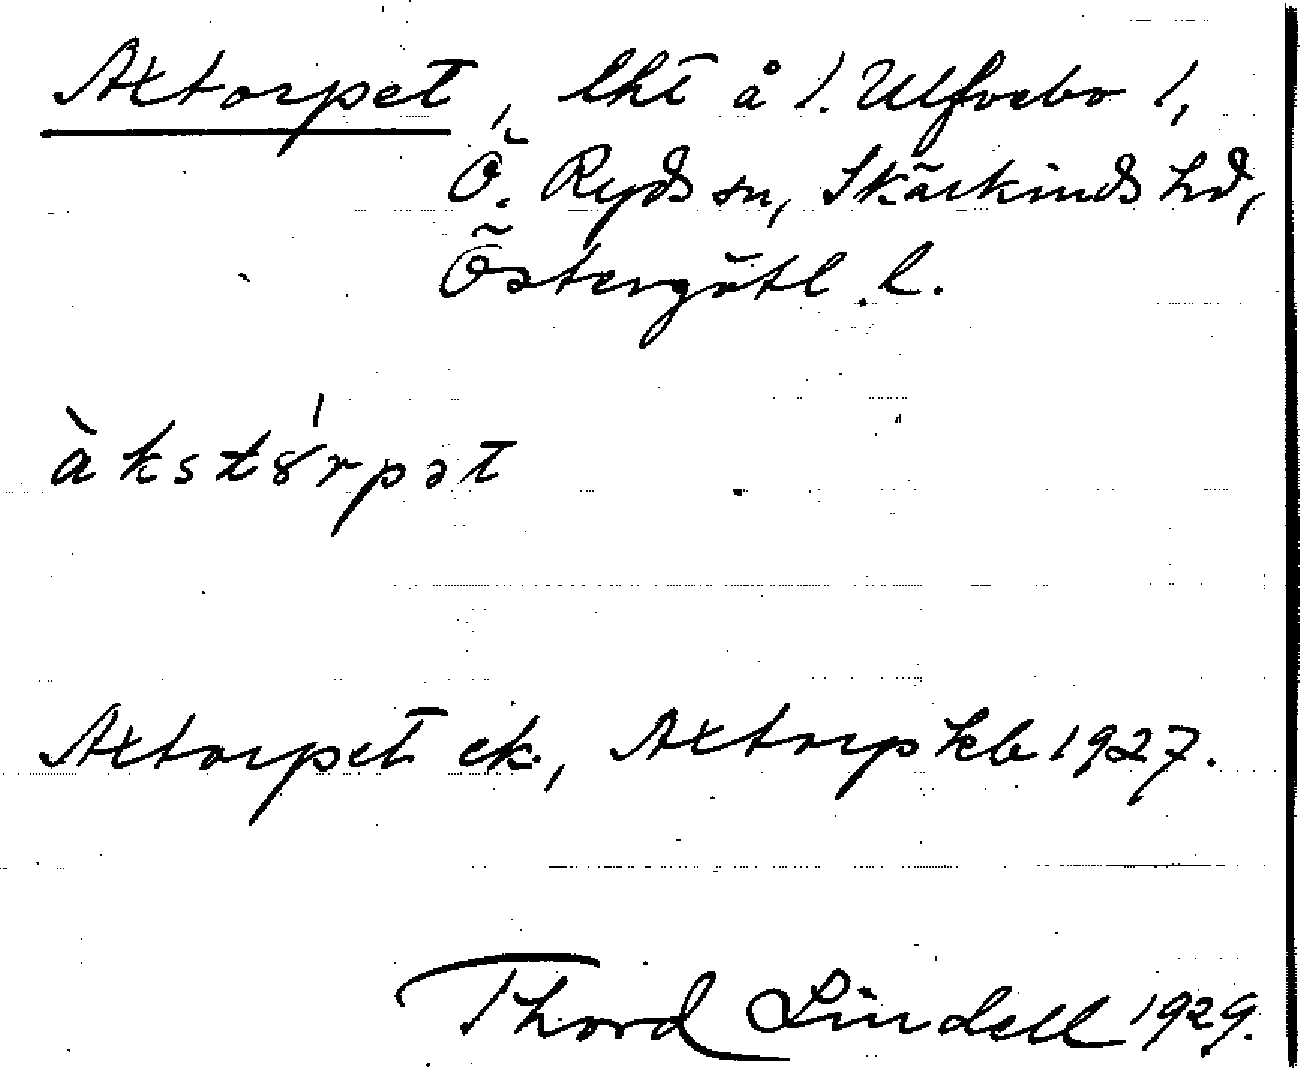 Axtorpet, lht å 1. Ulfvebo 1,
Ö. Ryds sn, Skärkinds hd,
Östergötl. l.
àkstȣ́rpət
Axtorpet ek., Axtorp kb 1927.
Thord Lindell 1929.